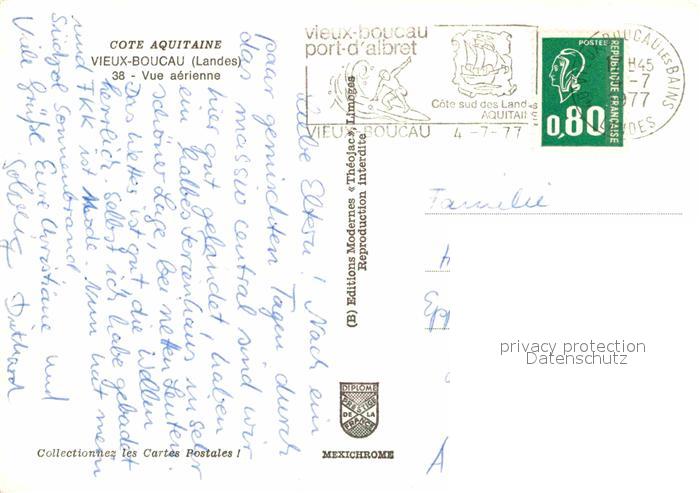 COTE AQUITAINE
VIEUX-BOUCAU (Landes)
38 - Vue aérienne
vieux-boucau
port-d'albret
VIEUX-BOUCAU
Côte sud des Landes
AQUITAINE
4-7-77
POSTES
REPUBLIQUE FRANÇAISE
0,80
BOUCAU LES BAINS
H45
-7
77
DES
Liebe Eltern! Nach ein
paar gemischten Tagen durch
das massiv central sind wir
hier gut gelandet, haben
ein halbes Ferienhaus in sehr
schöner Lage, bei netten Leuten.
Das Wetter ist gut die Wellen
herrlich, selbst ich habe gebadet
und FKK ist Mode. Nun mit mein
Südpol Sonnenbrand
Viele Grüße Eure Christiane und
Solveig
(B) Editions Modernes « Théojac », Limoges
Reproduction Interdite
Familie
Epp
A
privacy protection
Datenschutz
DIPLOME
PRESTIGE
DE LA
FRANCE
MEXICHROME
Collectionnez les Cartes Postales !